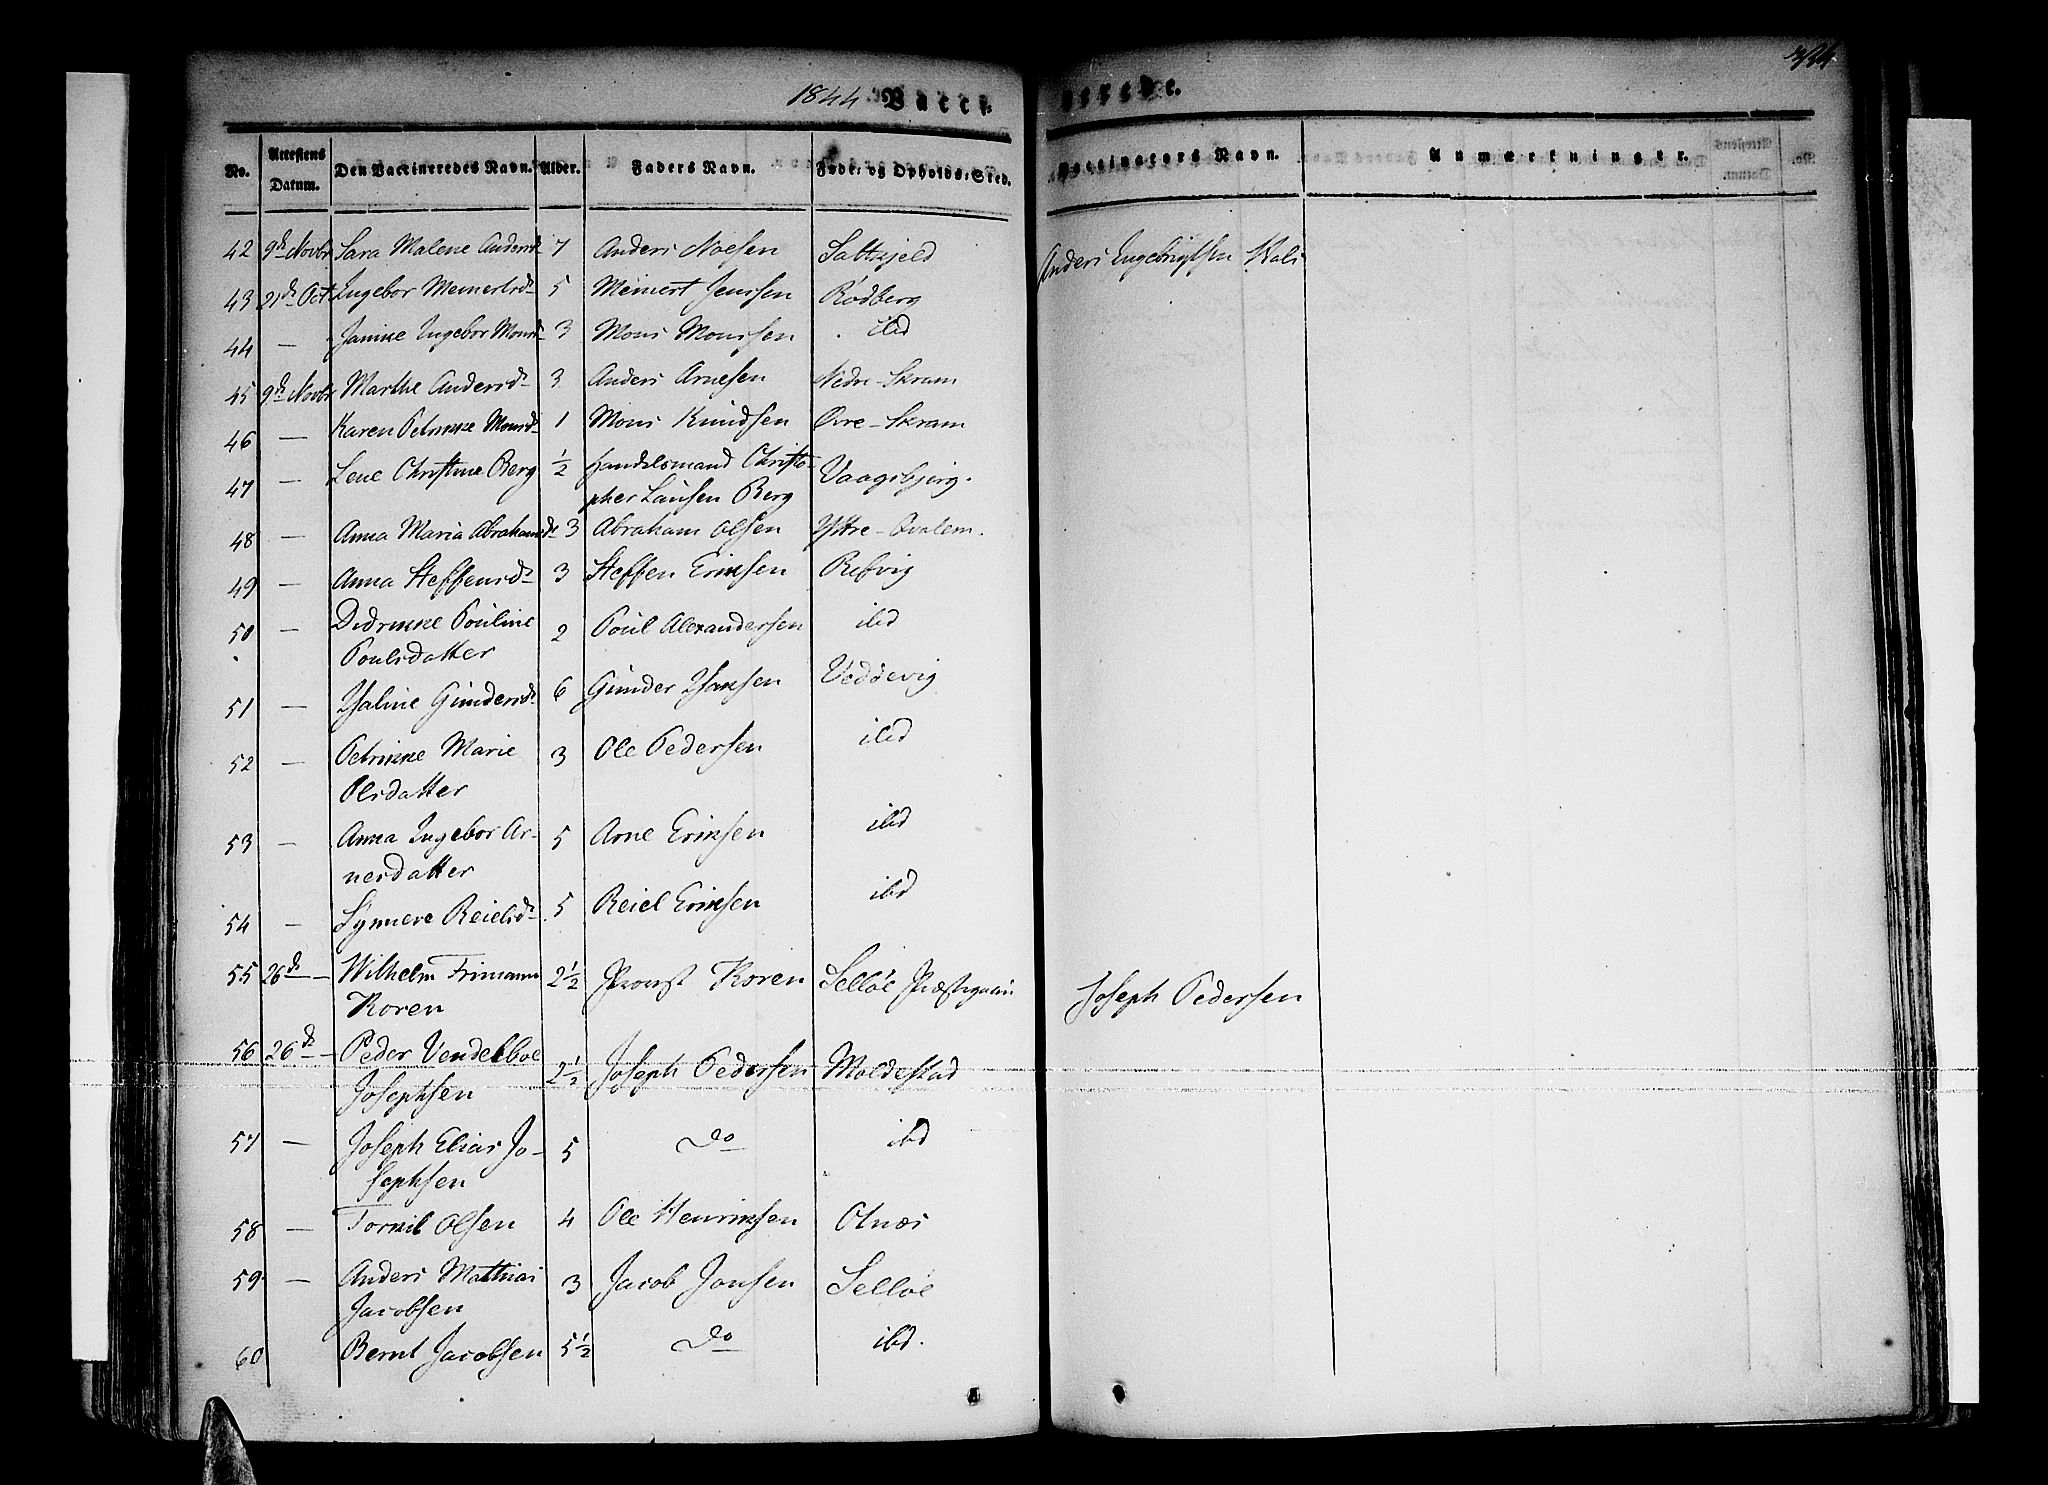 1844 Vacci-
nerede.
No. Attestens Datum. Den Vaccineredes Navn. Alder. Faders Navn. Føde- og Opholds-Sted. Vaccinators Navn. Anmærkninger.
42 9de Novbr Sara Malene Andersd. 7 Anders Noesen Saltskjeld Anders Engebrigtsen Kals
43 21de Oct Ingebor Meinertsd. 5 Meinert Jenssen Rødberg
44 — Janike Ingebor Monsd. 3 Mons Monssen ibd
45 9de Novbr Marthe Andersd. 3 Anders Arnesen Nedre-Skram
46 — Karen Petrikke Monsd. 1 Mons Knudsen Øvre-Skram
47 — Lene Christine Berg ½ Handelsmand Christo-
pher Lausen Berg Vaagsbjerg.
48 — Anna Maria Abrahamsd. 3 Abraham Olsen Yttre-Qvalem.
49 — Anna Steffensd. 3 Steffen Eriksen Refvig
50 — Didrikke Pouline 2 Poul Alexandersen ibd
Poulsdatter
51 — Hsaline Gundersd. 6 Gunder Hansen Vedvevig
52 — Petrikke Marie 3 Ole Pedersen ibd
Olsdatter
53 — Anna Ingebor Ar- 5 Arne Eriksen ibd
nesdatter
54 — Synneve Reielsd. 5 Reiel Eriksen ibd
55 26de — Wilhelm Frimann 2½ Provst Koren Selløe Præstegaard Joseph Pedersen
Koren
56 26de — Peder Vendelboe 2½ Joseph Pedersen Moldestad
Josephsen
57 — Joseph Elias Jo- 5 Do ibd
sephsen
58 — Tormil Olsen 4 Ole Henriksen Otnes
59 — Anders Mathias 3 Jacob Jonsen Selløe
Jacobsen
60 Bernt Jacobsen 5½ Do ibd.